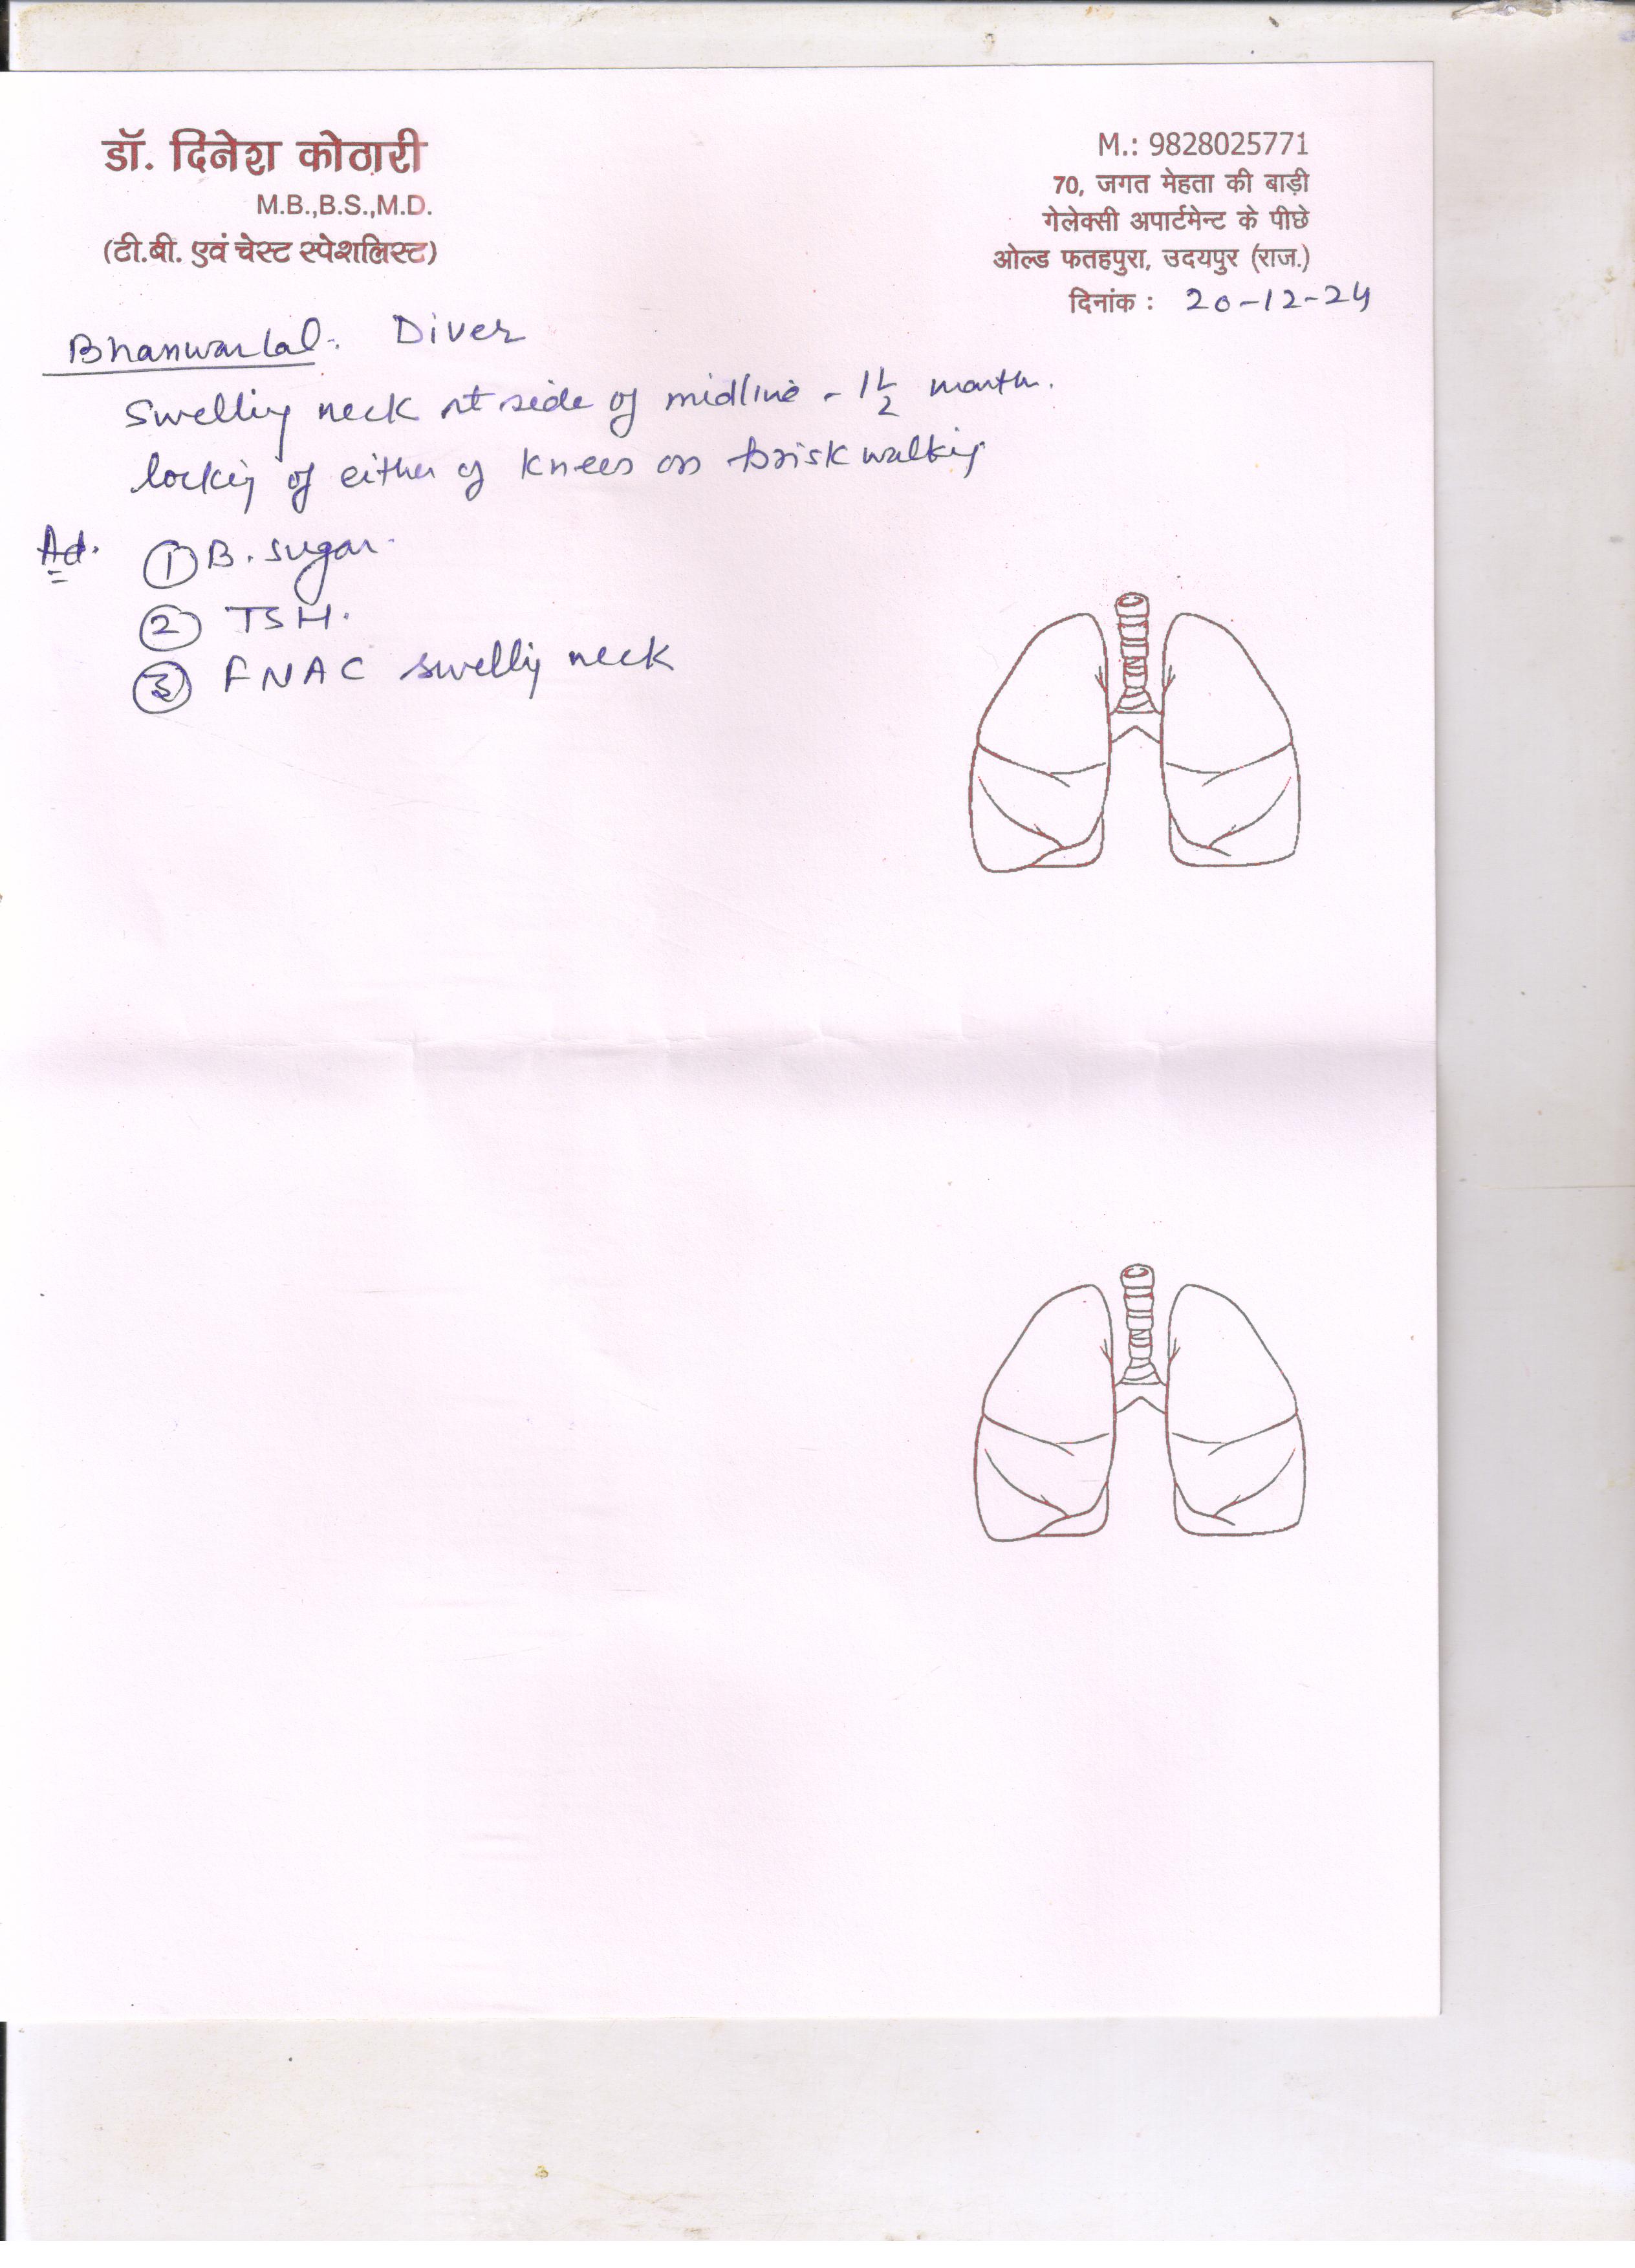 डॉ. दिनेश कोठारी
M.B.,B.S.,M.D.
(टी.बी. एवं चेस्ट स्पेशलिस्ट)
M.: 9828025771
70, जगत मेहता की बाड़ी
गेलेक्सी अपार्टमेन्ट के पीछे
ओल्ड फतहपुरा, उदयपुर (राज.)
दिनांक : 20-12-24
Bhanwarlal. Diver
Swelling neck rt side of midline - 1 1/2 month.
locking of either of knees on brisk walking
Ad. ① B. sugar.
② TSH.
③ FNAC swelling neck